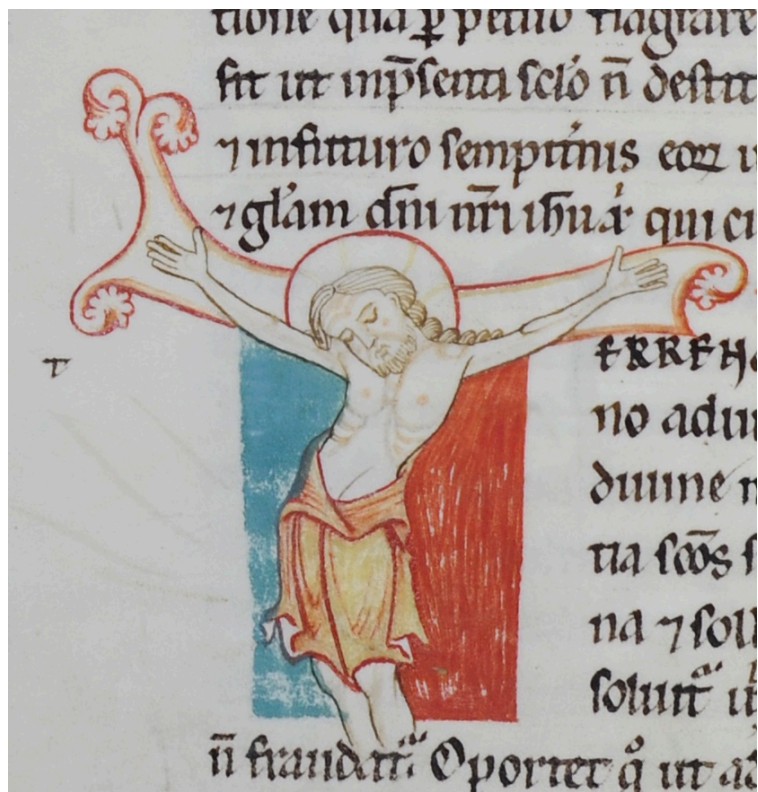 tione qua p̱ petuo flagrare
fit ut inp̄senti sclo n̄ destit
⁊ infuturo sempitnis eoꝝ
⁊ gl̄am dn̄i nr̄i ihu xp̄ qui cu
T
ERREN
no adui
diuine n
tia sc̄os s
na ⁊ soll
soluit
n̄ fraudat᷑ Oportet g̊ ut ad